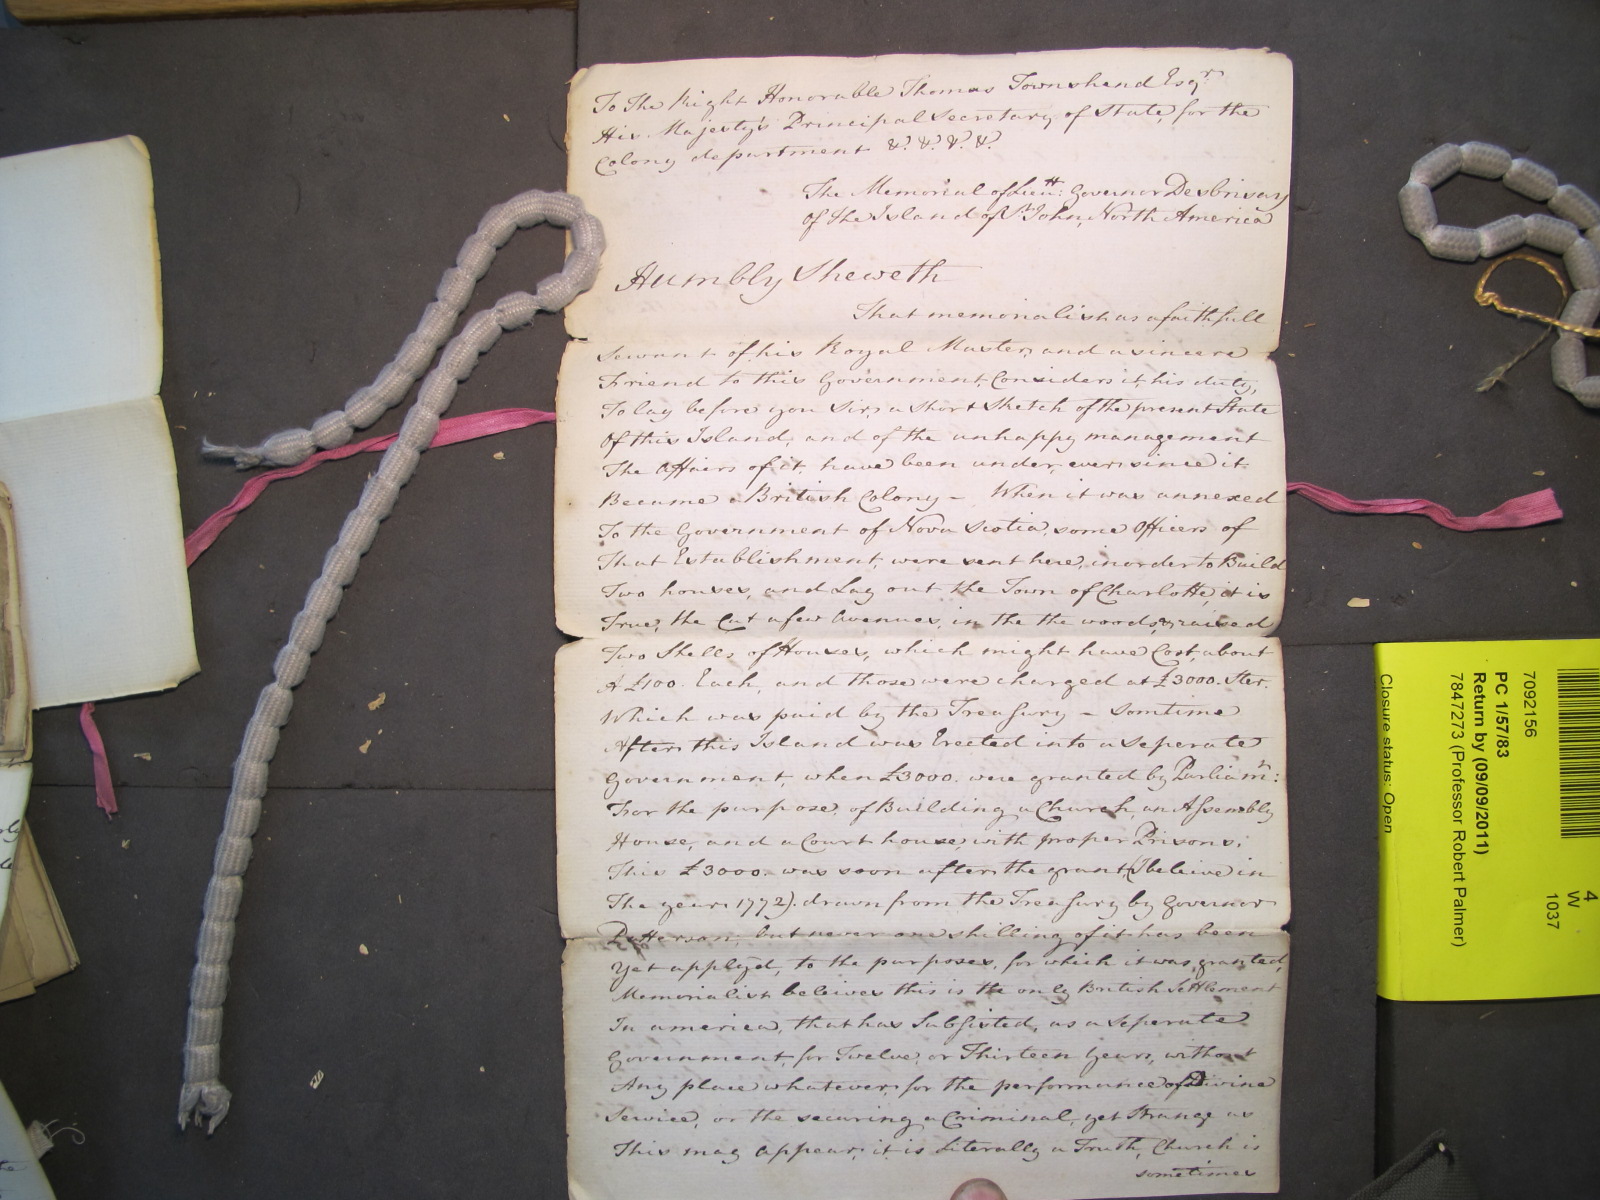 To The Right Honorable Thomas Townshend Esqr.
His Majesty's Principal Secretary of State, for the
Colony department &. &. &. &.
The Memorial of Lieutt: Governor Desbrisay
Of the Island of St. John, North America
Humbly Sheweth
That memorialist as a faithfull
Servant of his Royal Master, and a sincere
Friend to this Government, Considers it, his duty,
To lay before you Sir, a short sketch of the present State
Of this Island, and of the unhappy management
The Affairs of it, have been under, ever since it
Became a British Colony – When it was annexed
To the Government of Nova Scotia, some Officers of
That Establishment, were sent here, in order to Build
Two houses, and Lay out the Town of Charlotte, it is
True, the Cut a few Avenues, in the the woods, & raised
Two Shells of Houses, which might have Cost, about
A £100. Each, and those were charged at £3000. Ster.
Which was paid by the Treasury – Somtime
After this Island was Erected into a Seperate
Government, when £3000. were granted by Parliamt:
For the purpose, of Building a Church, an Assembly
House, and a Court house, with proper Prisons;
This £3000. was soon after the grant, (I beleive in
The year 1772). drawn from the Treasury by Governor
Patterson, but never one shilling of it has been
Yet applyd, to the purposes, for which it was granted,
Memorialist beleives this is the only British Settlement
In america, that has Subsisted, as a Seperate
Government, for Twelve, or Thirteen Years, without
Any place whatever, for the performance of Divine
Service, or the securing a Criminal, yet Strange as
This may appear, it is Literally a Truth, Church is
sometimes
7092156
PC 1/57/83
Return by (09/09/2011)
7847273 (Professor Robert Palmer)
Closure status: Open
4
W
1037